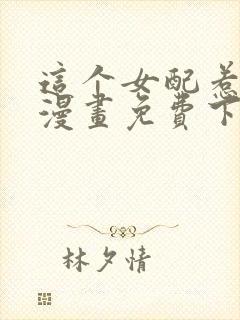 這个女配惹
漫畫免費下
林夕情